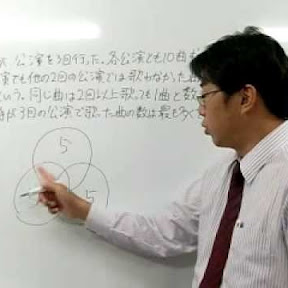 公演を3回行った.各公演とも10曲
演でも他の2回の公演では歌わなかった
いう.同じ曲は2回以上歌っても1曲と数
が3回の公演で歌った曲の数は最も多くて
5
5